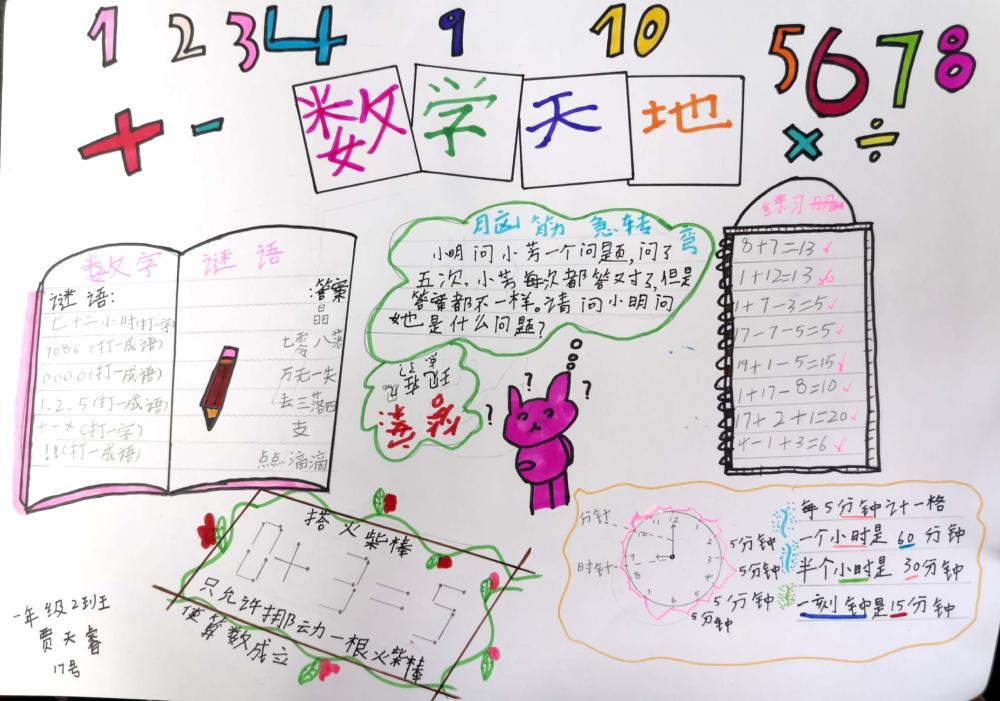 1 2 3 4 9 10 5 6 7 8
+ - × ÷
数学天地
数字谜语
谜语:
:答案
七十二小时(打一字)
晶
7086(打一成语)
七零八落
0000(打一成语)
万无一失
1.2.5(打一成语)
丢三落四
+-×(打一字)
支
!!(打一成语)
点点滴滴
脑筋急转弯
小明问小芳一个问题,问了
五次,小芳每次都答对了,但是
答案都不一样。请问小明问
她是什么问题?
答案:
现在几
点了?
? ? ?
练习册
8+7=13
1+12=13
1+7-3=5
17-7-5=5
19+1-5=15
1+17-8=10
17+2+1=20
4-1+3=6
搭火柴棒
只允许挪动一根火柴棒
使算数成立
分针
时针
12
1
2
3
4
6
7
8
9
10
11
5分钟
5分钟
5分钟
5分钟
每5分钟计一格
一个小时是60分钟
半个小时是30分钟
一刻钟是15分钟
一年级2班
贾天睿
17号